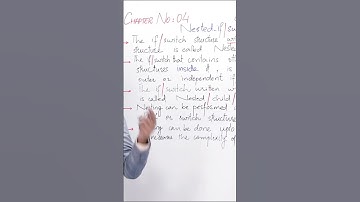 CHAPTER No: 04
Nested-if/sw
The if/switch structure
structure is called Neste
The if/switch that contains st
structures inside it, is
outer or independent if
The if/switch written w
is called Nested/child/
Nesting can be performed
or switch structure
can be done upto
the complexity of